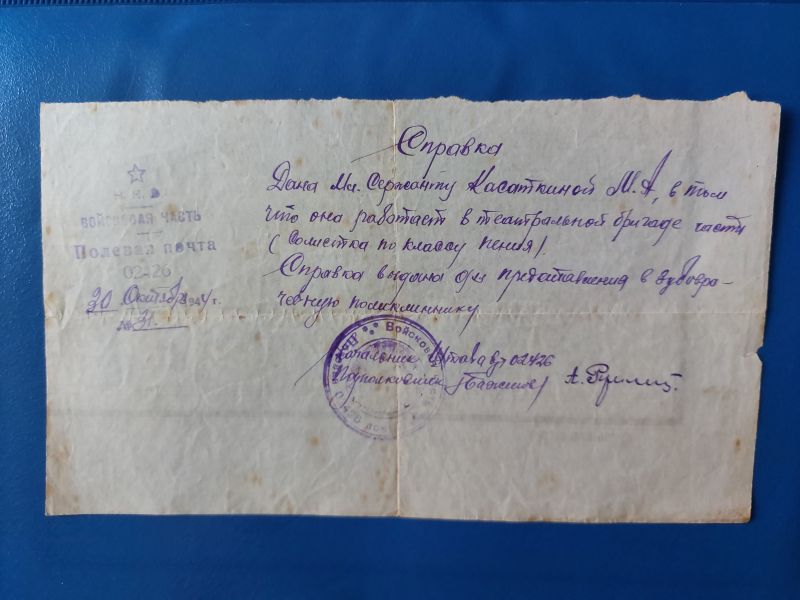 Н. К. О.
ВОЙСКОВАЯ ЧАСТЬ
Полевая почта
02-26
30 Октября 1944 г.
№ 31.
Справка
Дана Мл. Сержанту Касаткиной М. А, в том
что она работает в театральной бригаде части
(Солистка по классу пения).
Справка выдана для предоставления в Зубовра-
чебную поликлиннику
Начальник Штаба в/ч 02426
Подполковник
А.
Войсковая